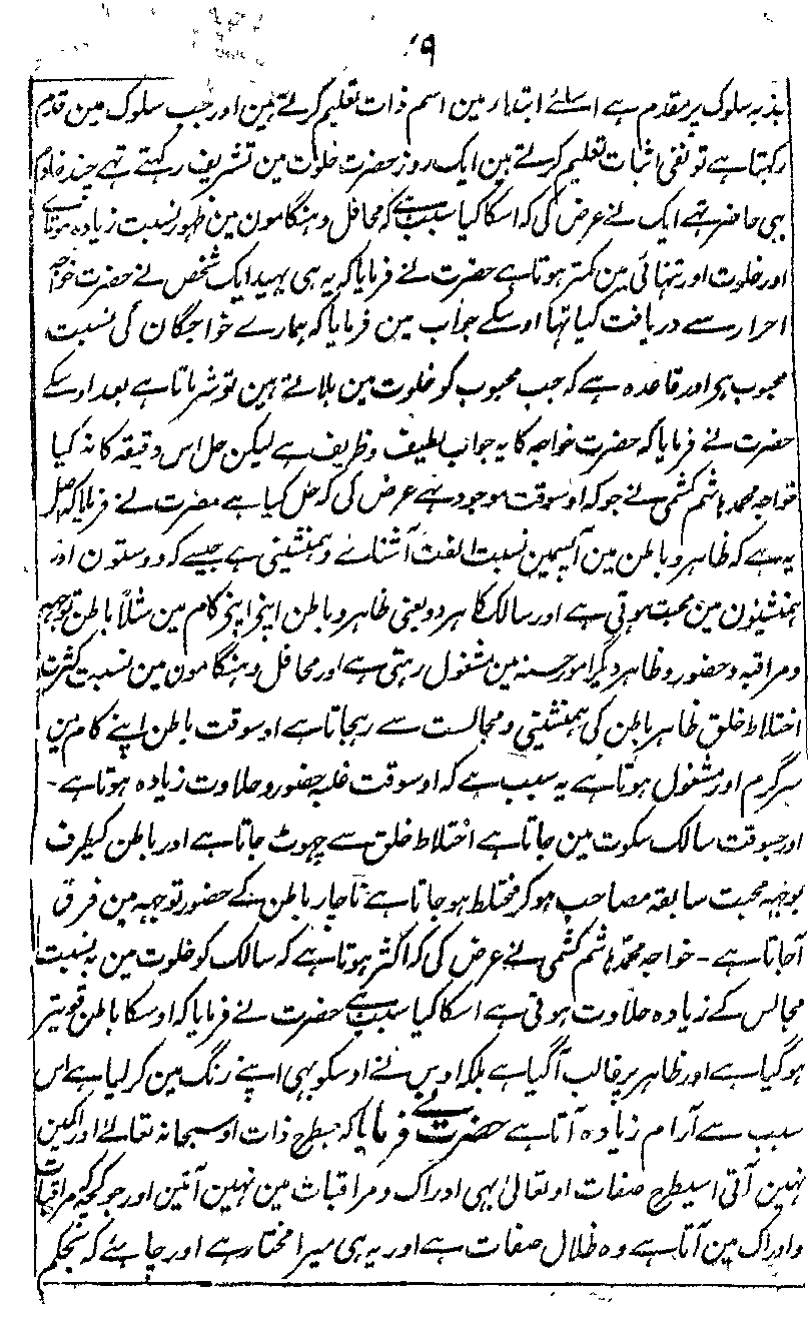 ۱۹
جذبہ سلوک پر مقدم ہے اسلئے ابتدا مین اسم ذات تعلیم کرتے ہین اور جب سلوک مین قدم
رکہتا ہے تو نفی اثبات تعلیم کرتے ہین ایک روز حضرت خلوت مین تشریف رکہتے تہے چند خادم
بہی حاضر تہے ایک نے عرض کی کہ اسکا کیا سبب ہے کہ محافل و ہنگامون مین ظہور نسبت زیادہ ہوتا ہے
اور خلوت اور تنہائی مین کمتر ہوتا ہے حضرت نے فرمایا کہ یہ ہی بہید ایک شخص نے حضرت خواجہ
احرار سے دریافت کیا تہا اوسکے جواب مین فرمایا کہ ہمارے خواجگان کی نسبت
محبوب ہے اور قاعدہ ہے کہ جب محبوب کو خلوت مین بلاتے ہین تو شرماتا ہے بعد اوسکے
حضرت نے فرمایا کہ حضرت خواجہ کا یہ جواب لطیف و ظریف ہے لیکن حل اس دقیقہ کا نہ کیا
خواجہ محمد ہاشم کشمی نے جو کہ اوسوقت موجود تہے عرض کی کہ حل کیا ہے حضرت نے فرمایا کہ حل
یہ ہے کہ ظاہر و باطن مین آپسمین نسبت الفت آشنائے و ہمنشینی ہے جیسے کہ دوستون اور
ہمنشینون مین محبت ہوتی ہے اور سالک کا ہر دو یعنی ظاہر و باطن اپنے اپنے کام مین مثلاً باطن توجہ
و مراقبہ و حضور و ظاہر دیگر امور حسنہ مین مشغول رہتی ہے اور محافل و ہنگامون مین نسبت کثرت
اختلاط خلق ظاہر باطن کی ہمنشینی و مجالست سے رہجاتا ہے اوسوقت باطن اپنے کام مین
سرگرم اور مشغول ہوتا ہے یہ سبب ہے کہ اوسوقت غلبہ حضور و حلاوت زیادہ ہوتا ہے -
اور جسوقت سالک سکوت مین جاتا ہے اختلاط خلق سے چہوٹ جاتا ہے اور باطن کیطرف
بوجہہ محبت سابقہ مصاحب ہو کر مختلط ہو جاتا ہے ناچار باطن کے حضور توجہ مین فرق
آجاتا ہے - خواجہ محمد ہاشم کشمی نے عرض کی کہ اکثر ہوتا ہے کہ سالک کو خلوت مین بہ نسبت
مجالس کے زیادہ حلاوت ہوتی ہے اسکا کیا سبب ہے حضرت نے فرمایا کہ اوسکا باطن قویتر
ہوگیا ہے اور ظاہر پر غالب آگیا ہے بلکہ اوس نے اوسکو بہی اپنے رنگ مین کر لیا ہے اس
سبب سے آرام زیادہ آتا ہے حضرت نے فرمایا کہ جسطرح ذات او سبحانہ تعالےٰ ادراک مین
نہین آتی اسیطرح صفات او تعالیٰ بہی ادراک و مراقبات مین نہین آئین اور جو کچہہ مراقبات
و ادراک مین آتا ہے وہ ظلال صفات ہے اور یہ ہی میرا مختار ہے اور چاہئے کہ بحکم